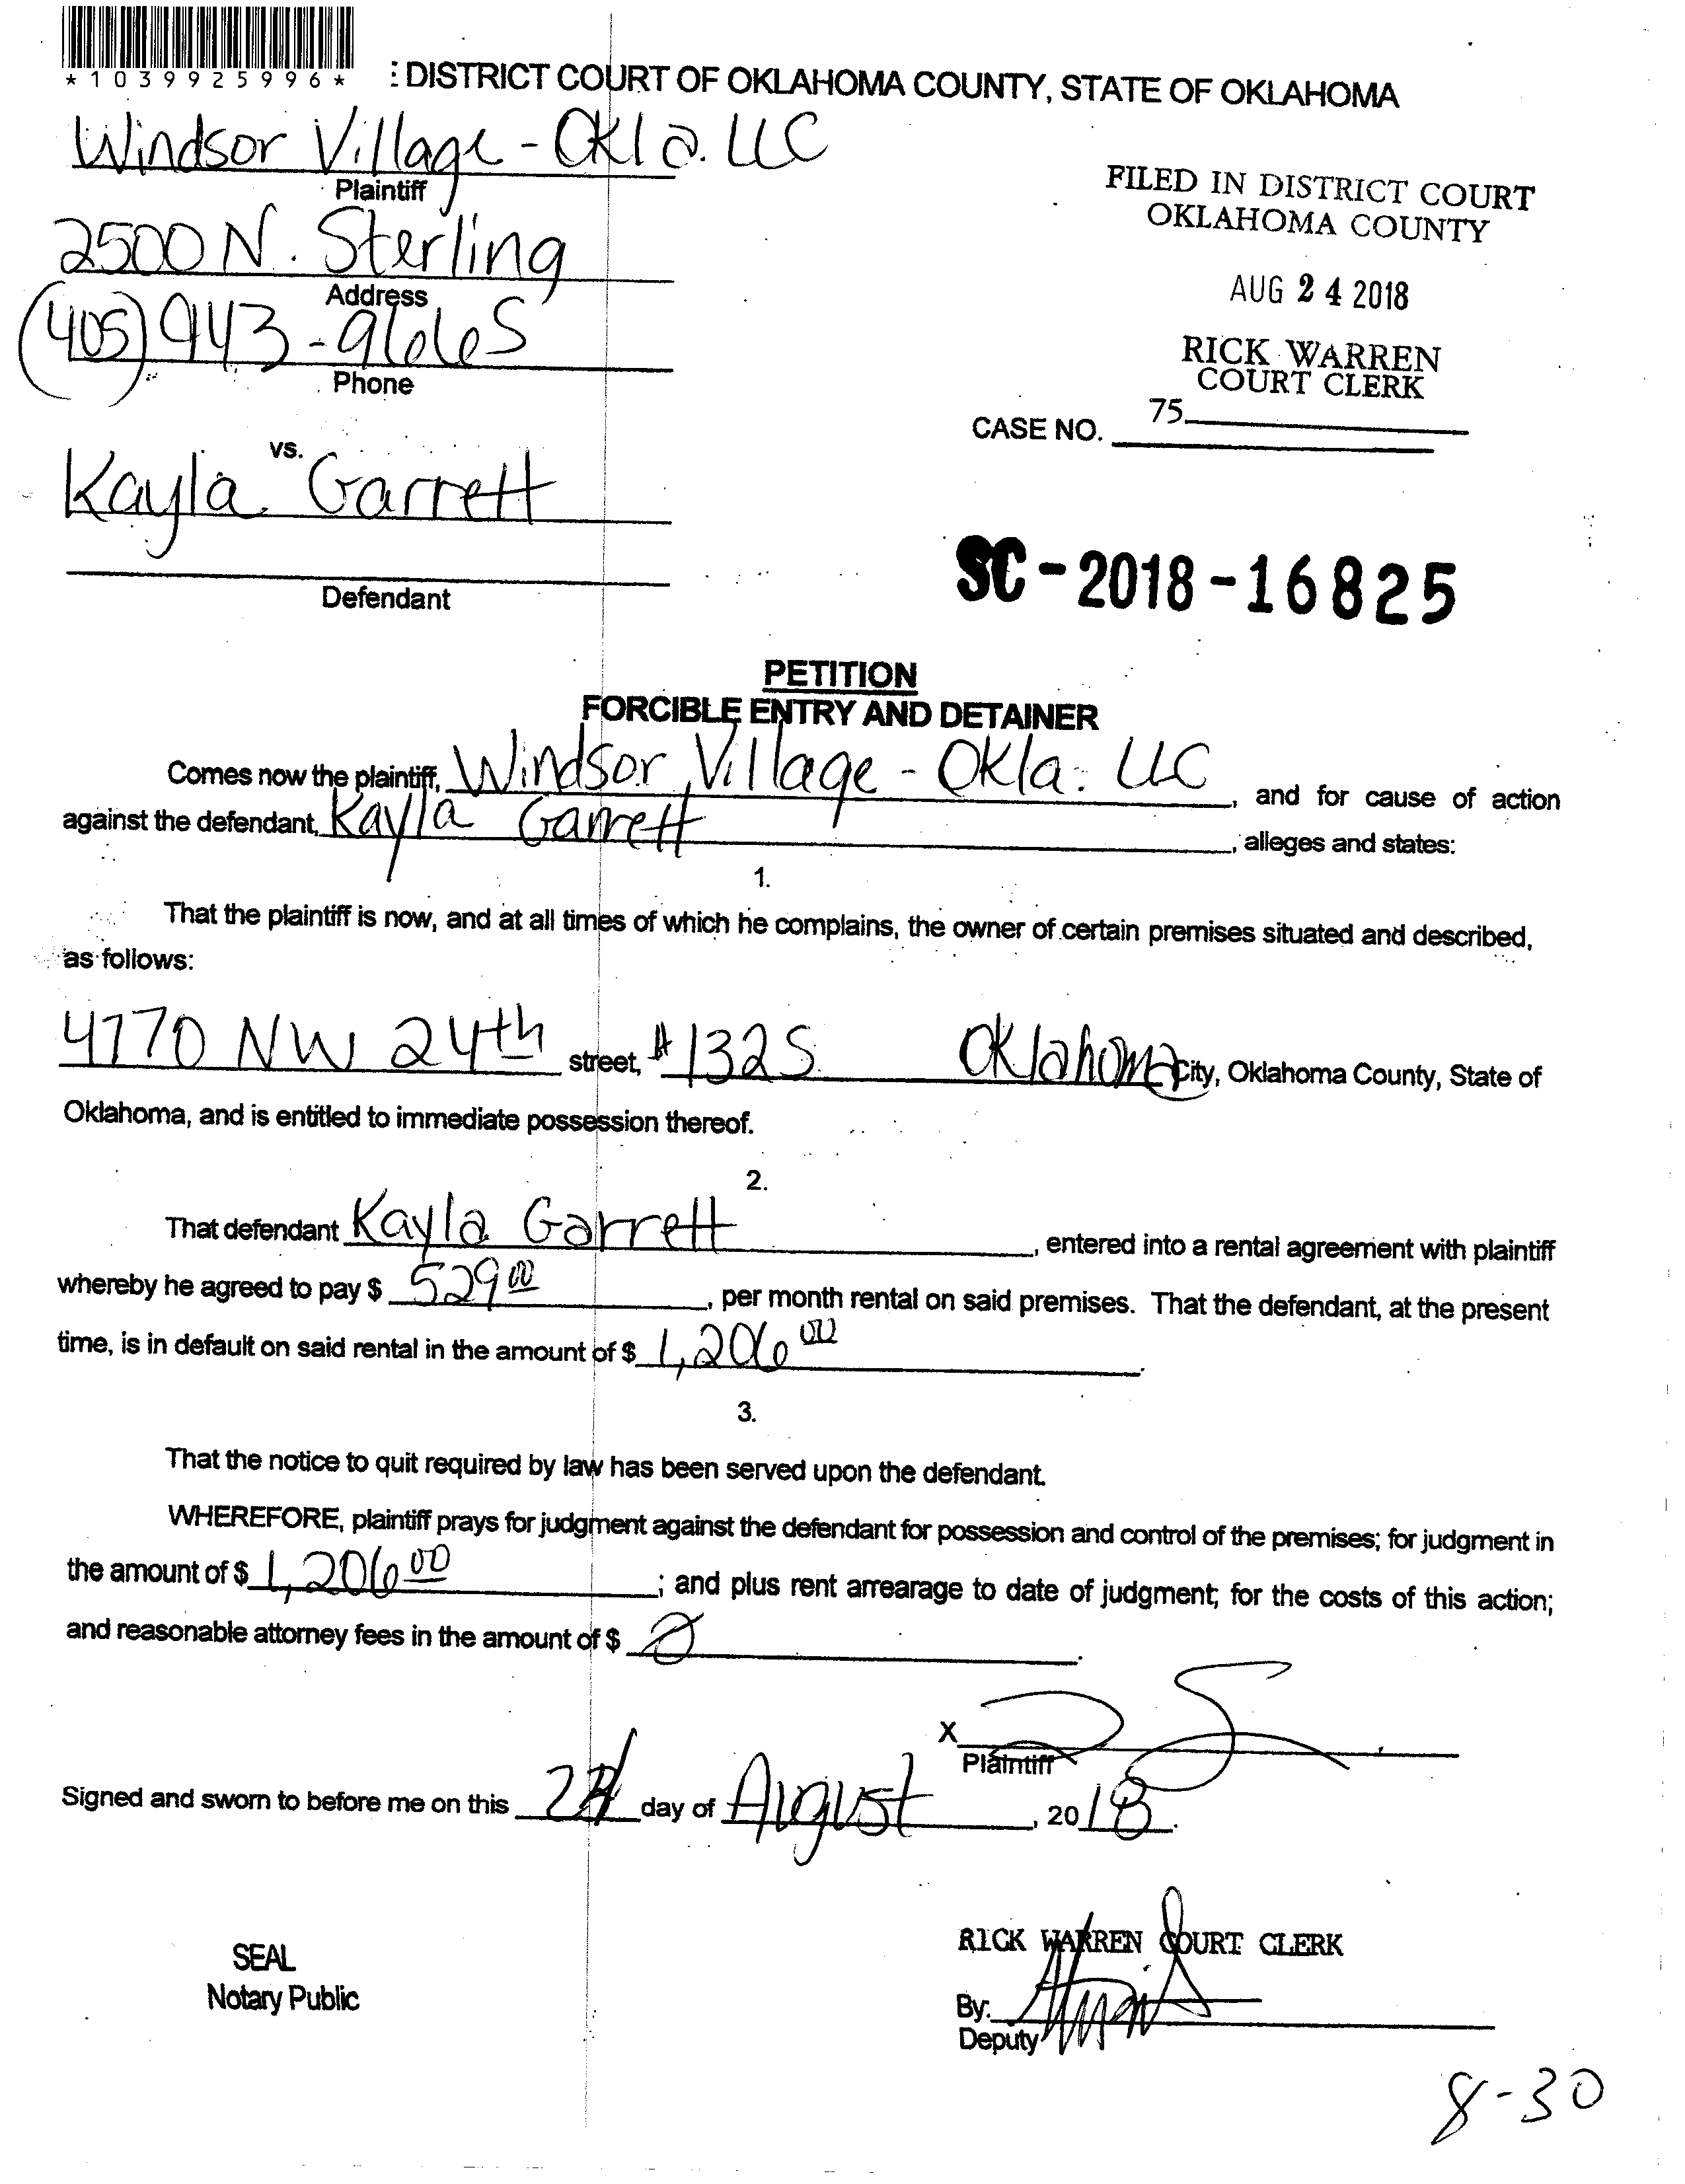 *1039925996*
: DISTRICT COURT OF OKLAHOMA COUNTY, STATE OF OKLAHOMA
Windsor Village - Okla. LLC
Plaintiff
2500 N. Sterling
Address
(405) 943-9665
Phone
FILED IN DISTRICT COURT
OKLAHOMA COUNTY
AUG 24 2018
RICK WARREN
COURT CLERK
75
CASE NO.
vs.
Kayla Garrett
Defendant
SC-2018-16825
PETITION
FORCIBLE ENTRY AND DETAINER
Comes now the plaintiff, Windsor Village - Okla. LLC, and for cause of action
against the defendant, Kayla Garrett, alleges and states:
1.
That the plaintiff is now, and at all times of which he complains, the owner of certain premises situated and described,
as follows:
4770 NW 24th street, #132S Oklahoma City, Oklahoma County, State of
Oklahoma, and is entitled to immediate possession thereof.
2.
That defendant Kayla Garrett, entered into a rental agreement with plaintiff
whereby he agreed to pay $ 529 00, per month rental on said premises. That the defendant, at the present
time, is in default on said rental in the amount of $ 1,206 00.
3.
That the notice to quit required by law has been served upon the defendant.
WHEREFORE, plaintiff prays for judgment against the defendant for possession and control of the premises; for judgment in
the amount of $ 1,206 00; and plus rent arrearage to date of judgment; for the costs of this action;
and reasonable attorney fees in the amount of $ 0.
X
Plaintiff
Signed and sworn to before me on this day of August, 2018.
SEAL
Notary Public
RICK WARREN COURT CLERK
By:
Deputy
8-30